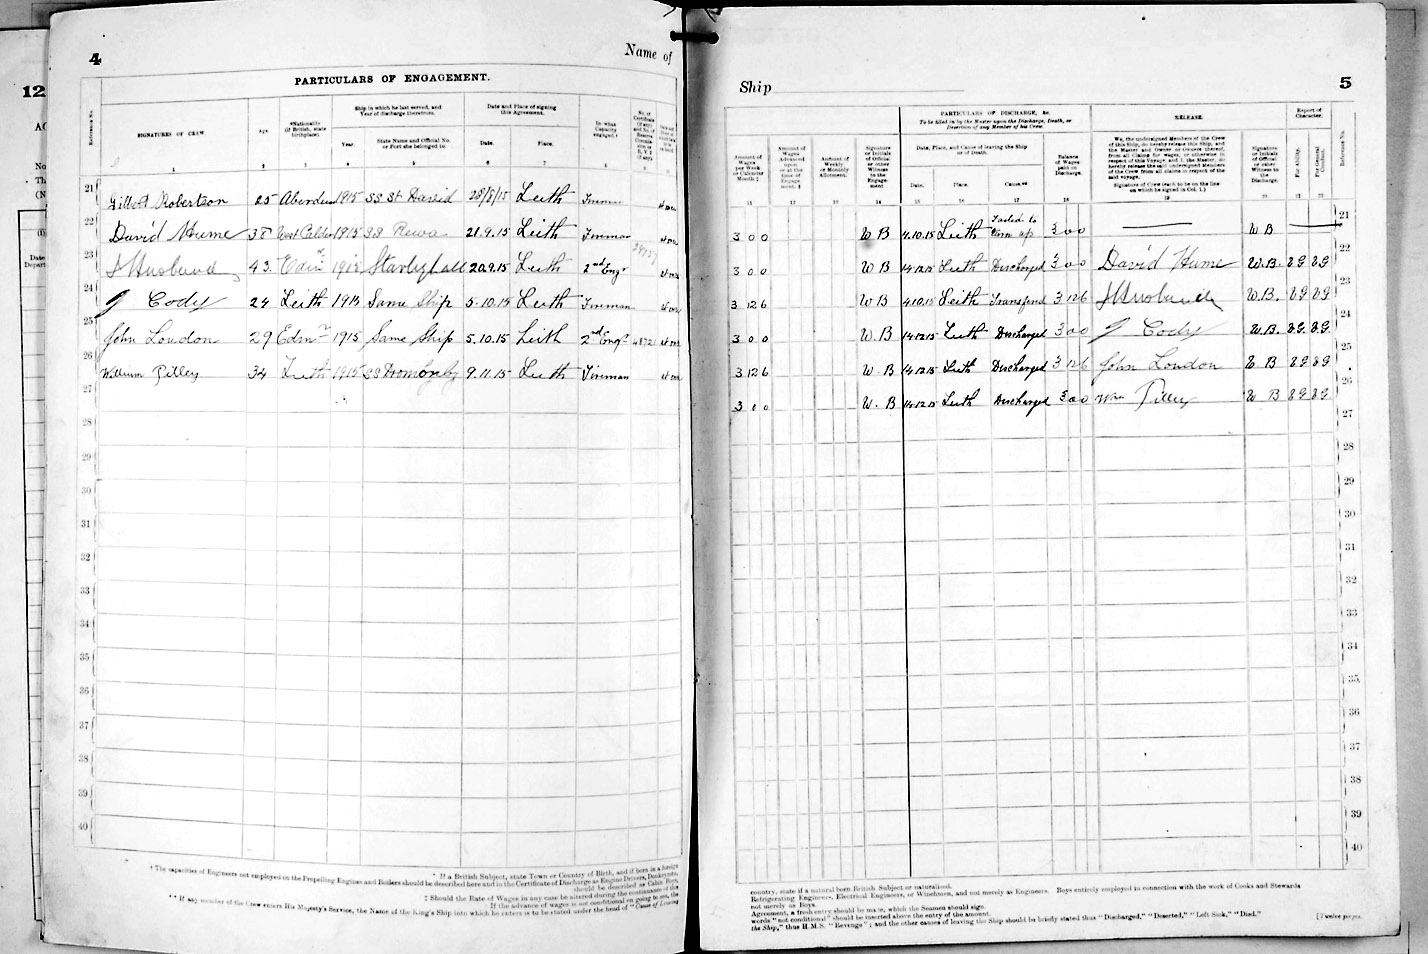 4
Name of
PARTICULARS OF ENGAGEMENT.
Reference No.
SIGNATURES OF CREW.
Age.
*Nationality (if British, state birthplace).
Ship in which he last served, and Year of discharge therefrom.
Year.
State Name and Official No. or Port she belonged to.
Date and Place of signing this Agreement.
Date.
Place.
In what Capacity engaged.†
1 2 3 4 5 6 7 8
21 Gilbert Robertson 25 Aberdeen 1915 SS St David 28/8/15 Leith Fireman
22 David Hume 38 West Calder 1915 SS Rewa 21.9.15 Leith Fireman
23 J Husband 43 Edinr 1915 Starleyhall 20.9.15 Leith 2nd Engr
24 J Cody 24 Leith 1915 Same Ship 5.10.15 Leith Fireman
25 John Loudon 29 Edinr 1915 Same Ship 5.10.15 Leith 2nd Engr
26 William Pilley 34 Leith 1915 SS 9.11.15 Leith Fireman
27
28
29
30
31
32
33
34
35
36
37
38
39
40
* If a British Subject, state Town or Country of Birth, and if born in a foreign
† The capacities of Engineers not employed on the Propelling Engines and Boilers should be described here and in the Certificate of Discharge as Engine Drivers, Donkeymen,
should be described as Cabin Boys,
‡ Should the Rate of Wages in any case be altered during the continuance of this
If the advance of wages is not conditional on going to sea, the
** If any member of the Crew enters His Majesty's Service, the Name of the King's Ship into which he enters is to be stated under the head of "Cause of Leaving
12
Ship
5
PARTICULARS OF DISCHARGE, &c.
To be filled in by the Master upon the Discharge, Death, or Desertion of any Member of his Crew.
RELEASE.
Report of Character.
Amount of Wages per Week or Calendar Month ‡
Amount of Wages Advanced upon or at the time of Engagement. ‡
Amount of Weekly or Monthly Allotment.
Signature or Initials of Official or other Witness to the Engagement
Date, Place, and Cause of leaving the Ship or of Death.
Date.
Place.
Cause.**
Balance of Wages paid on Discharge.
We, the undersigned Members of the Crew of this Ship, do hereby release this Ship, and the Master and Owner or Owners thereof, from all Claims for wages, or otherwise in respect of this Voyage; and I, the Master, do hereby release the said undersigned Members of the Crew from all claims in respect of the said voyage.
Signature of Crew (each to be on the line on which he signed in Col. 1.)
Signature or Initials of Official or other Witness to the Discharge.
For Ability.
For General Conduct.
Reference No.
11 12 13 14 15 16 17 18 19 20 21 22
3 0 0 W B 4.10.15 Leith Failed to turn up 3 0 0 W B 21
3 0 0 W B 14.12.15 Leith Discharged 3 0 0 David Hume W.B. VG VG 22
3 12 6 W B 4.10.15 Leith Transferred 3 12 6 J Husband W.B. VG VG 23
3 0 0 W.B 14.12.15 Leith Discharged 3 0 0 J Cody W.B. VG VG 24
3 12 6 W.B 14.12.15 Leith Discharged 3 12 6 John Loudon W B VG VG 25
3 0 0 W.B 14.12.15 Leith Discharged 3 0 0 Wm Pilley W B VG VG 26
27
28
29
30
31
32
33
34
35
36
37
38
39
40
country, state if a natural born British Subject or naturalised.
Refrigerating Engineers, Electrical Engineers, or Winchmen, and not merely as Engineers. Boys entirely employed in connection with the work of Cooks and Stewards
not merely as Boys.
Agreement, a fresh entry should be made, which the Seamen should sign.
words "not conditional" should be inserted above the entry of the amount.
the Ship," thus H.M.S. "Revenge"; and the other causes of leaving the Ship should be briefly stated thus "Discharged," "Deserted," "Left Sick," "Died."
[Twelve pages.